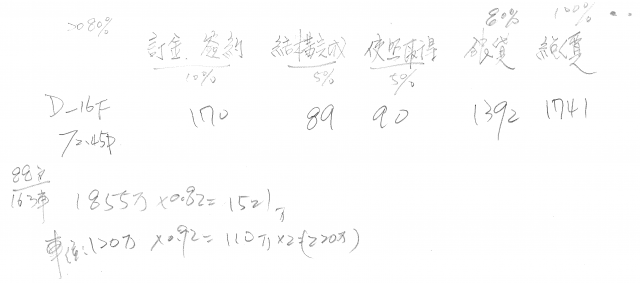 80% 100%
>80% 訂金、簽約 結構完成 使照取得 銀貸 總價
10% 5% 5%
D-16F 170 89 90 1392 1741
72.45坪
88戶
163車 1855万×0.82=1521万
車位:120万×0.92=110万×2=(220万)